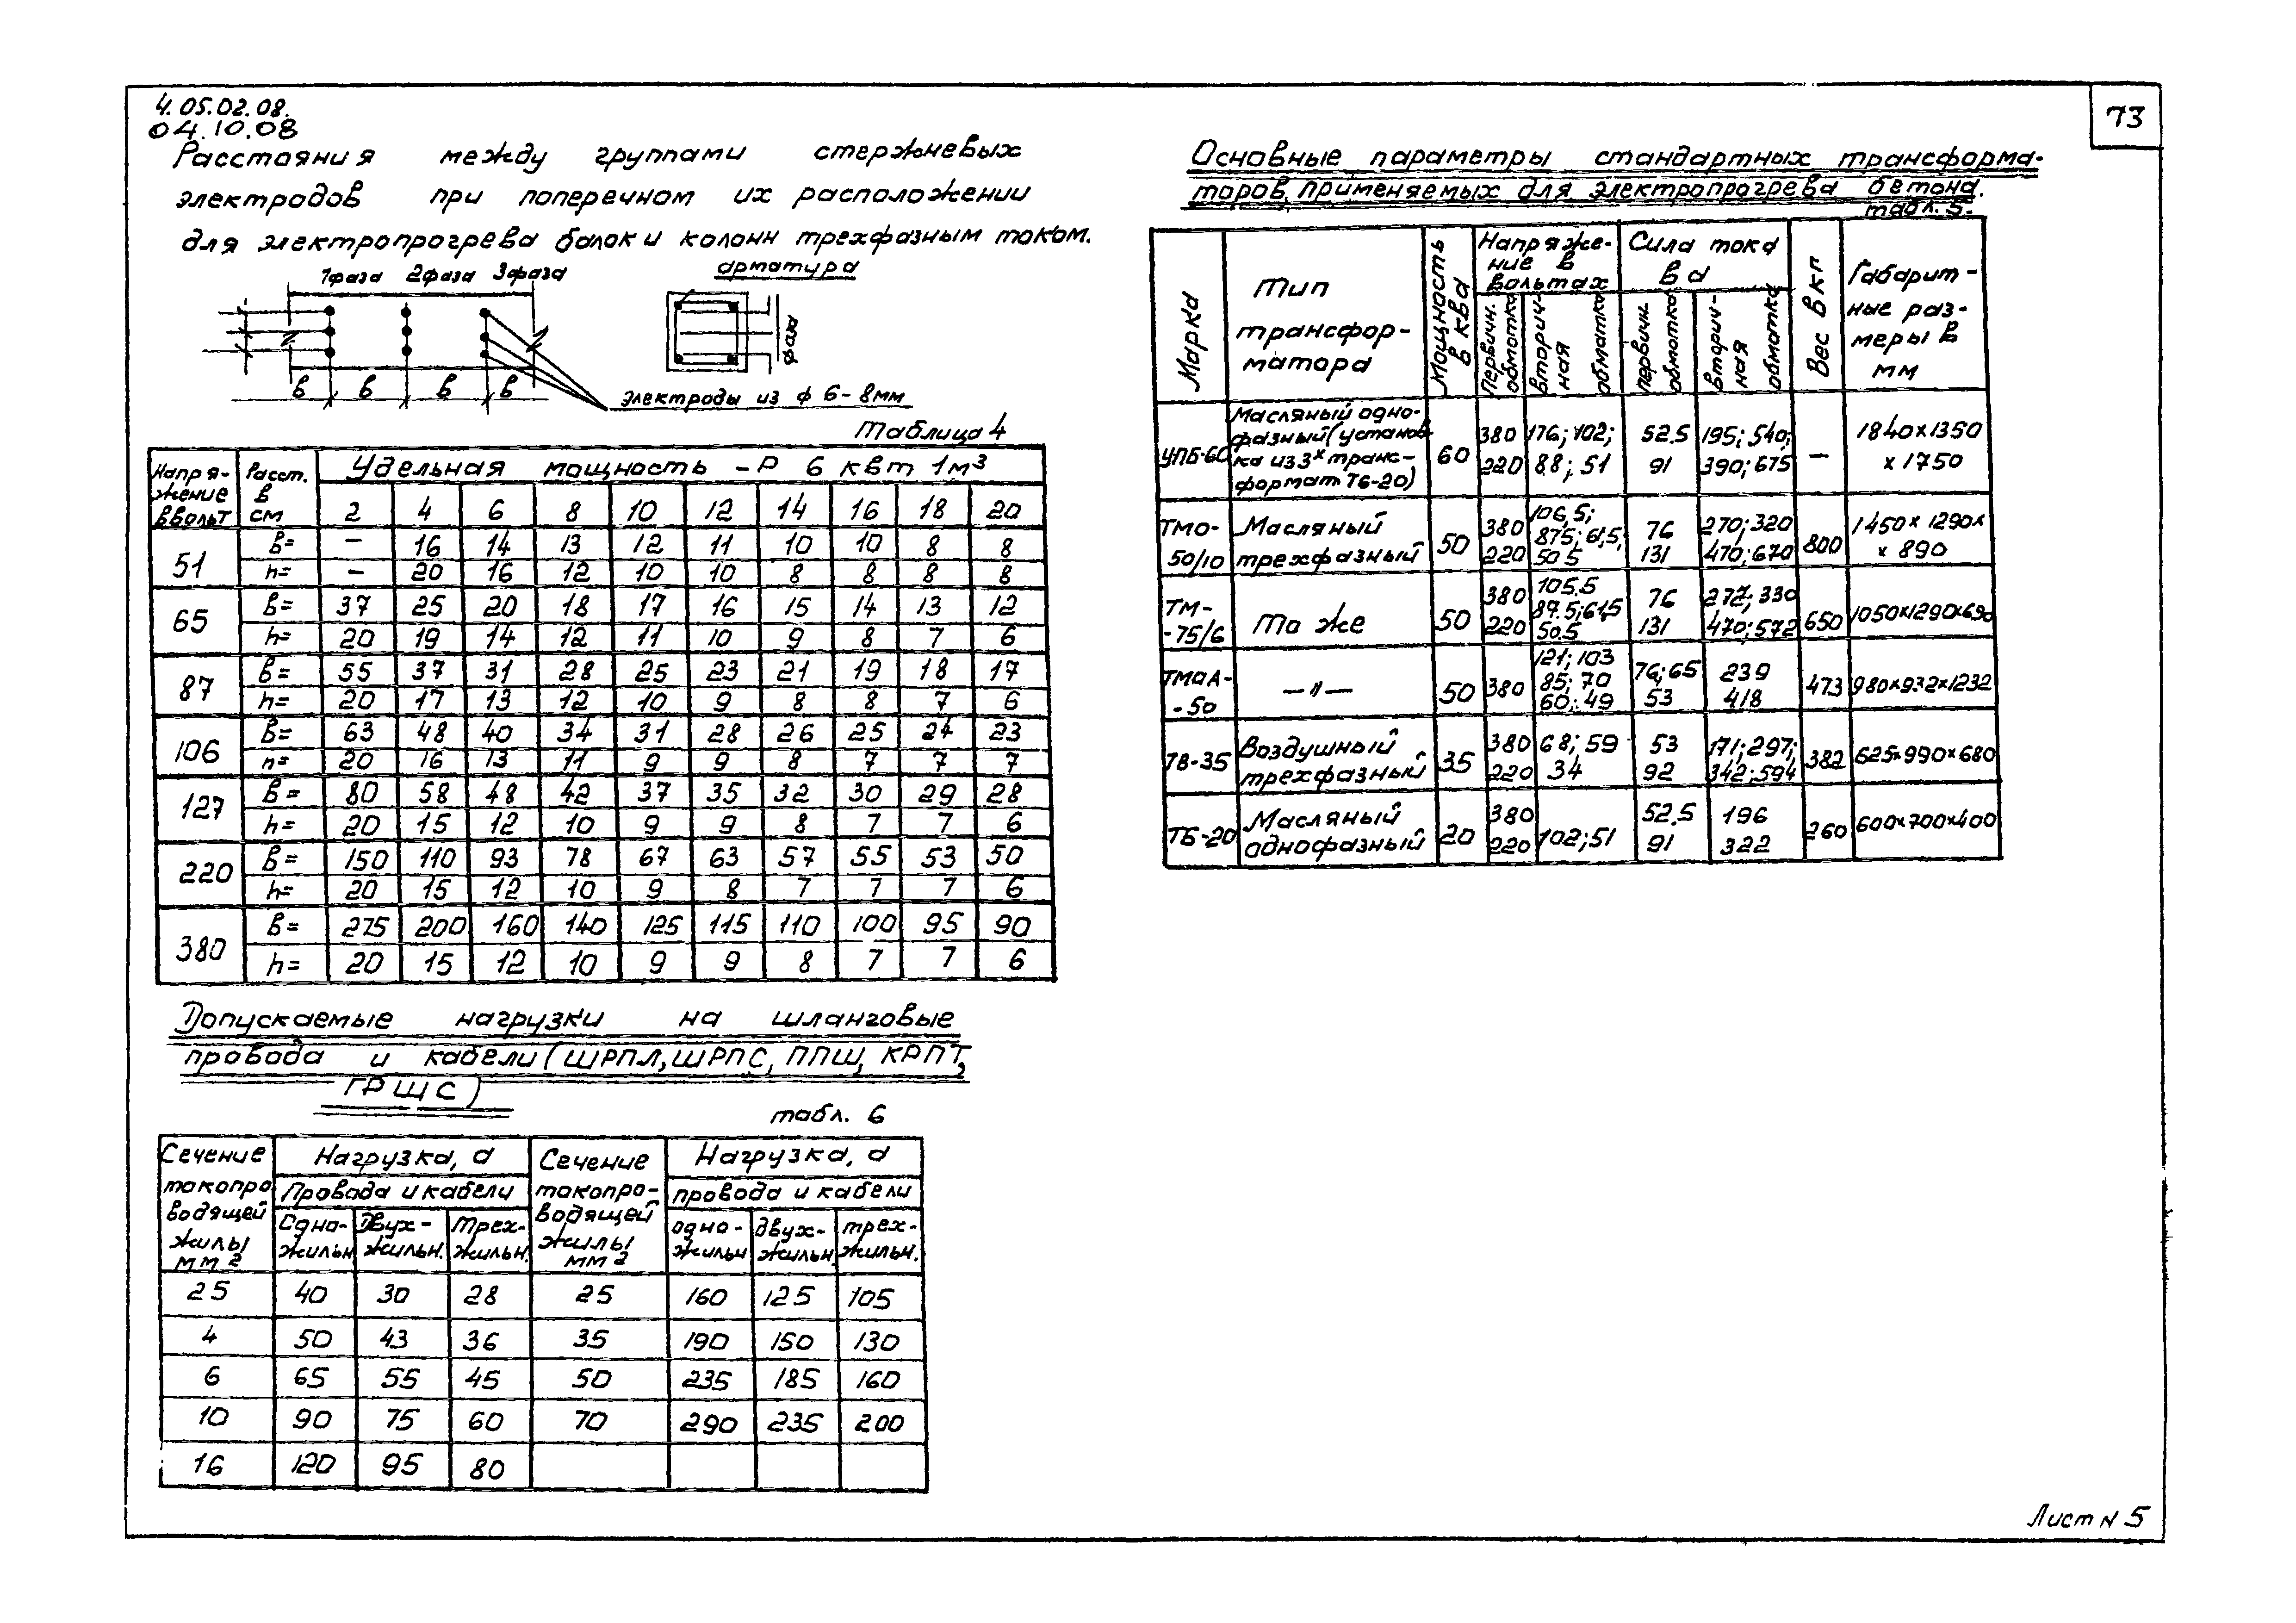 4.05.02.08.
04.10.08
73
Расстояния между группами стержневых
электродов при поперечном их расположении
для электропрогрева балок и колонн трехфазным током.
1фаза 2фаза 3фаза
арматура
фаза
в в в в
Электроды из ф 6-8мм
Таблица 4
Напря-жение в вольт | Расст. в см | Удельная мощность - Р в квт 1м³
2 4 6 8 10 12 14 16 18 20
51 в= — 16 14 13 12 11 10 10 8 8
h= — 20 16 12 10 10 8 8 8 8
65 в= 37 25 20 18 17 16 15 14 13 12
h= 20 19 14 12 11 10 9 8 7 6
87 в= 55 37 31 28 25 23 21 19 18 17
h= 20 17 13 12 10 9 8 8 7 6
106 в= 63 48 40 34 31 28 26 25 24 23
h= 20 16 13 11 9 9 8 7 7 7
127 в= 80 58 48 42 37 35 32 30 29 28
h= 20 15 12 10 9 9 8 7 7 6
220 в= 150 110 93 78 67 63 57 55 53 50
h= 20 15 12 10 9 8 7 7 7 6
380 в= 275 200 160 140 125 115 110 100 95 90
h= 20 15 12 10 9 9 8 7 7 6
Допускаемые нагрузки на шланговые
провода и кабели (ШРПЛ, ШРПС, ППШ, КРПТ,
ГРШС)
табл. 6
Сечение токопро водящей жилы мм2 | Нагрузка, а | Сечение токопро-водящей жилы мм2 | Нагрузка, а
Провода и кабели | провода и кабели
Одно-жильн | Двух-жильн. | Трех-жильн. | одно-жильн | двух-жильн. | трех-жильн.
25 40 30 28 25 160 125 105
4 50 43 36 35 190 150 130
6 65 55 45 50 235 185 160
10 90 75 60 70 290 235 200
16 120 95 80
Основные параметры стандартных трансформа-
торов, применяемых для электропрогрева бетона.
табл. 5.
Марка | Тип трансфор-матора | Мощность в ква | Напряже-ние в вольтах | Сила тока в а | Вес в кп | Габарит-ные раз-меры в мм
Первичн. обмотка | вторич-ная обмотка | первичн. обмотка | вторич-ная обмотка
УПБ-60 | Масляный одно-фазный (установ-ка из 3х транс-формат ТБ-20) | 60 | 380 220 | 176; 102; 88; 51 | 52.5 91 | 195; 540; 390; 675 | — | 1840x1350 x1750
ТМО-50/10 | Масляный трехфазный | 50 | 380 220 | 106,5; 875; 61,5; 50 5 | 76 131 | 270; 320 470; 670 | 800 | 1450x1290x x 890
ТМ--75/6 | То же | 50 | 380 220 | 105.5 87.5; 61,5 50.5 | 76 131 | 272; 330 470; 572 | 650 | 1050x1290x690
ТМОА--50 | —"— | 50 | 380 | 121; 103 85; 70 60; 49 | 76; 65 53 | 239 418 | 473 | 980x932x1232
ТВ-35 | Воздушный трехфазный | 35 | 380 220 | 68; 59 34 | 53 92 | 171; 297; 342; 594 | 382 | 625x990x680
ТБ-20 | Масляный однофазный | 20 | 380 220 | 102; 51 | 52.5 91 | 196 322 | 260 | 600x700x400
Лист N 5